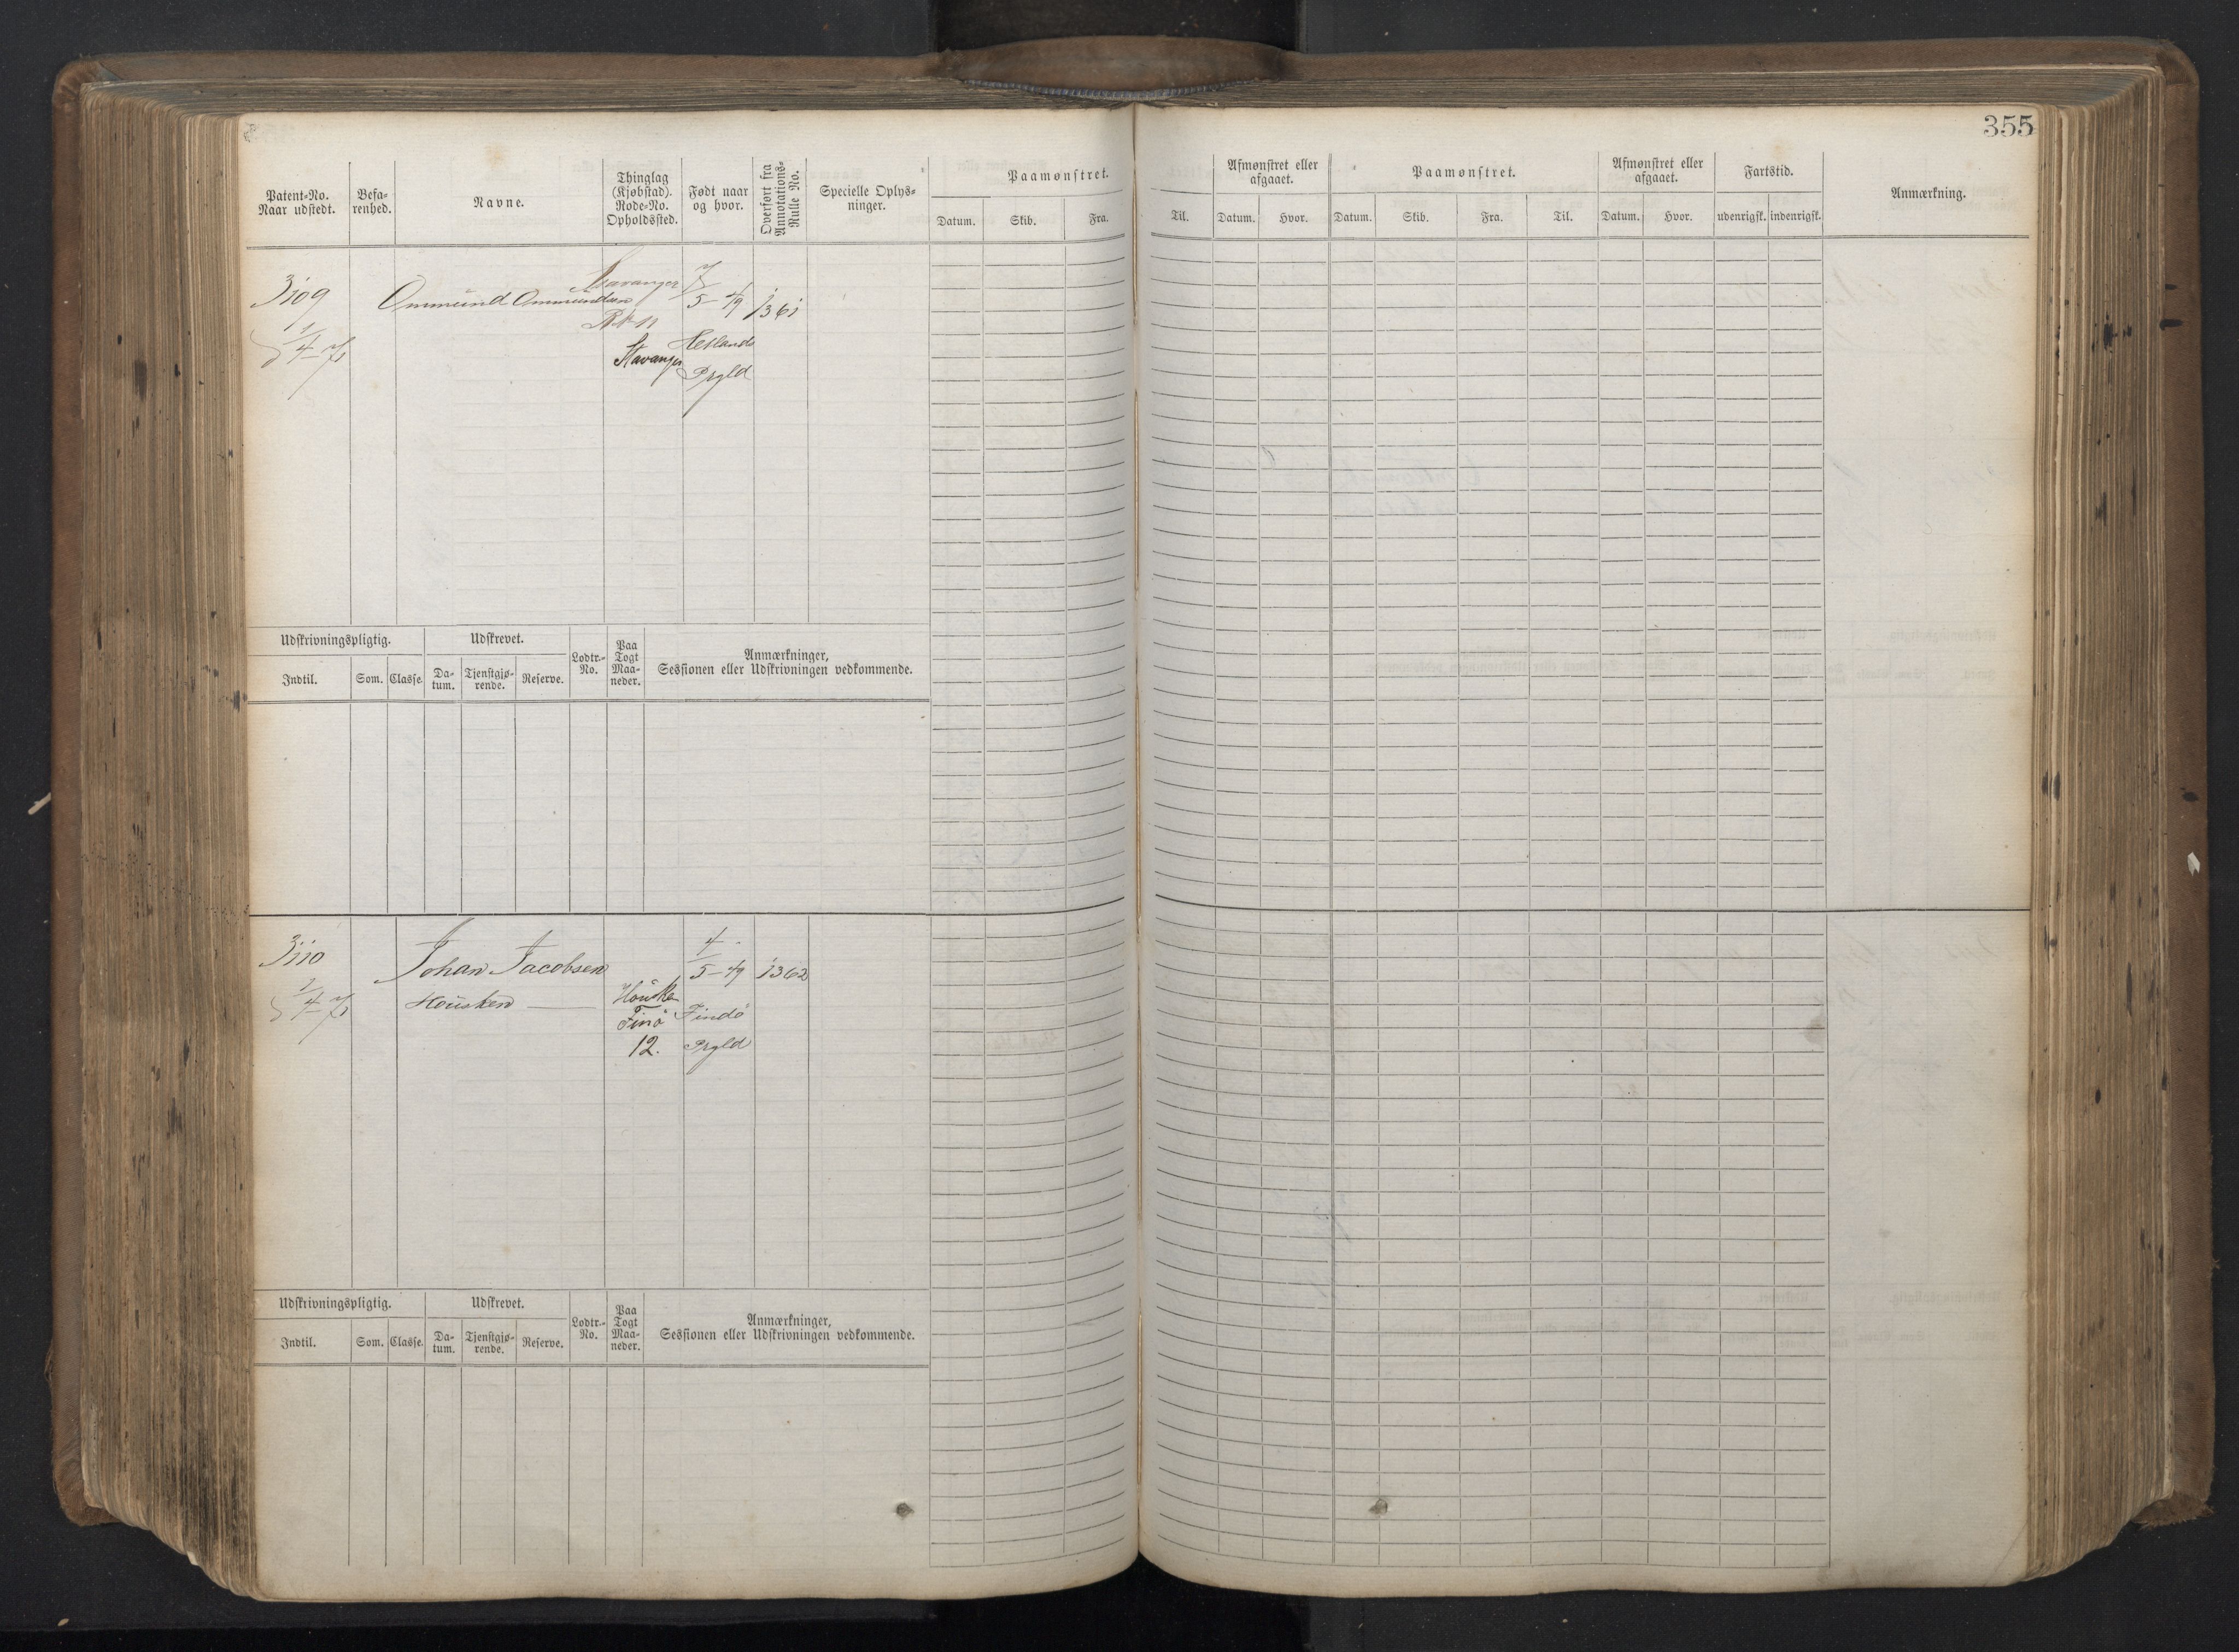 355
Patent-No. Naar udstedt.
Befa-renhed.
Navne.
Thinglag (Kjøbstad). Rode-No. Opholdssted.
Født naar og hvor.
Overført fra Annotations-Rulle No.
Specielle Oplys-ninger.
Paamønstret.
Datum. Skib. Fra.
Til.
Afmønstret eller afgaaet.
Datum. Hvor.
Paamønstret.
Datum. Skib. Fra. Til.
Afmønstret eller afgaaet.
Datum. Hvor.
Fartstid.
udenrigsk. indenrigsk.
Anmærkning.
3109
1/4 71
Ommund Ommundsen
Stavanger
Stavanger
7/5-49
Hetlands
Prgld
1361
Udskrivningspligtig.
Indtil. Som. Classe.
Udskrevet.
Da-tum. Tjenstgjø-rende. Reserve.
Lodtr.-No.
Paa Togt Maa-neder.
Anmærkninger,
Sessionen eller Udskrivningen vedkommende.
3110
1/4 71
Johan Jacobsen
Housken
Houske
Finö
12.
4/5-49
Findö
Prgld
1362
Udskrivningspligtig.
Indtil. Som. Classe.
Udskrevet.
Da-tum. Tjenstgjø-rende. Reserve.
Lodtr.-No.
Paa Togt Maa-neder.
Anmærkninger,
Sessionen eller Udskrivningen vedkommende.